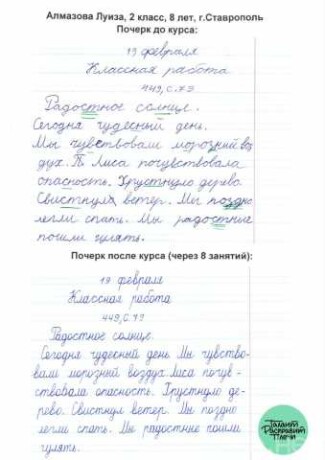 Алмазова Луиза, 2 класс, 8 лет, г.Ставрополь
Почерк до курса:
19 февраля
Классная работа
449, с.79
Радостное солнце.
Сегодня чудесный день.
Мы чувствовали морозний воз
дух. Лиса почувствовала
опасность. Хрустнуло дерево.
Свистнул ветер. Мы поздно
легли спать. Мы радостные
пошли гулять.
Почерк после курса (через 8 занятий):
19 февраля
Классная работа
449, с.79
Радостное солнце.
Сегодня чудесный день Мы чувство-
вали морозний воздух Лиса почув-
ствовала опасность. Хрустнуло де-
рево. Свистнул ветер. Мы поздно
легли спать. Мы радостние пошли
гулять.